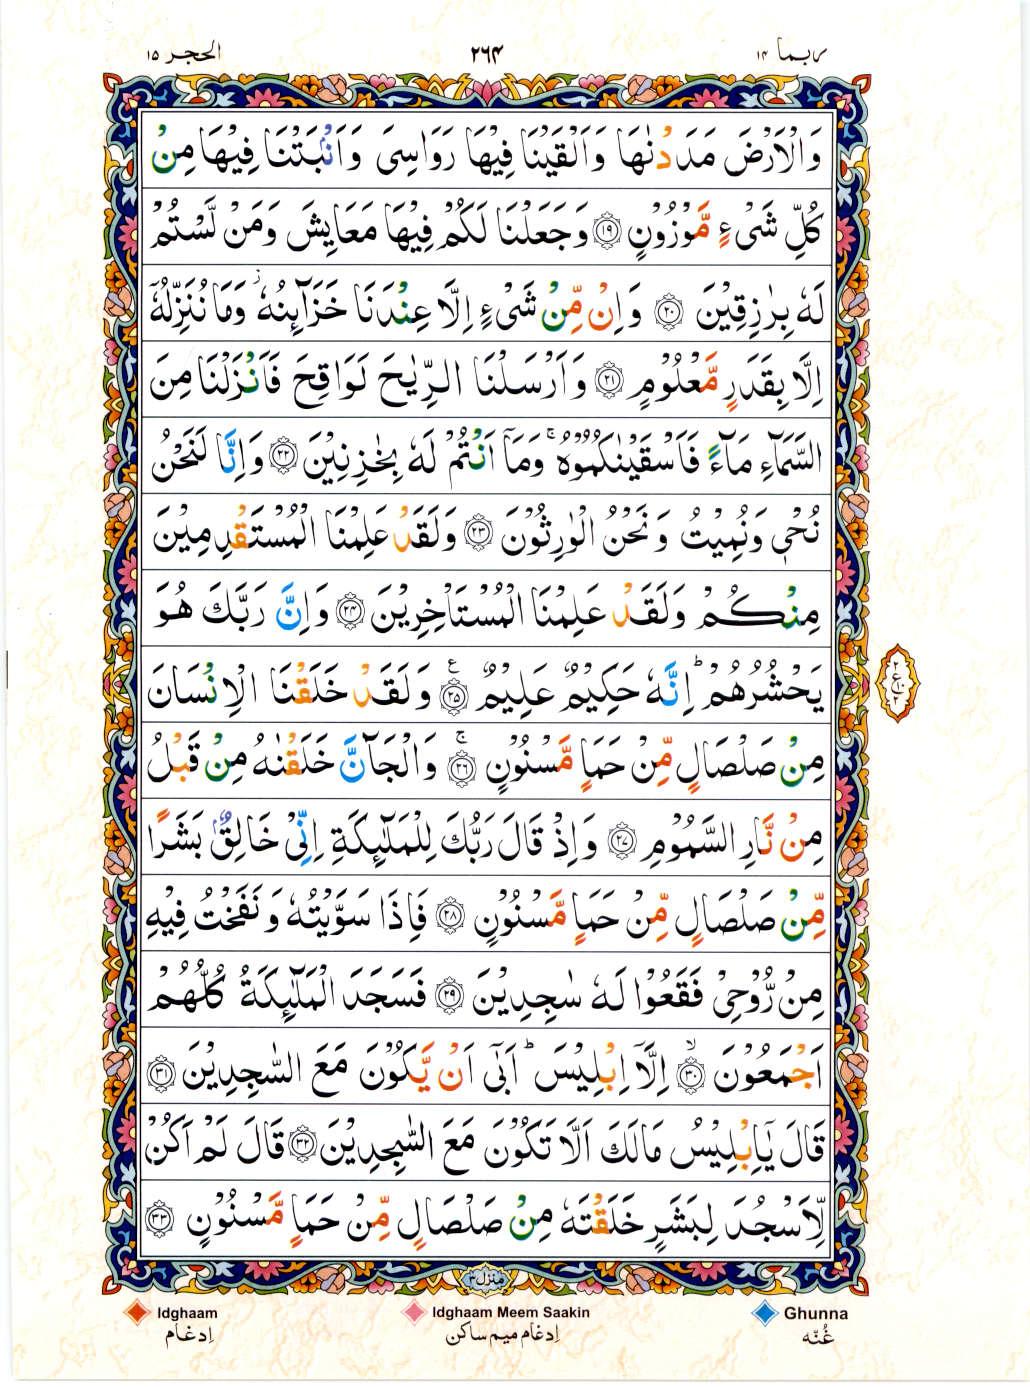 الحجر ١٥
٢٦٤
ربما ١٤
وَالْاَرْضَ مَدَدْنٰهَا وَاَلْقَيْنَا فِيْهَا رَوَاسِىَ وَاَنْۢبَتْنَا فِيْهَا مِنْ
كُلِّ شَىْءٍ مَّوْزُوْنٍ ﴿١٩﴾ وَجَعَلْنَا لَكُمْ فِيْهَا مَعَايِشَ وَمَنْ لَّسْتُمْ
لَهٗ بِرٰزِقِيْنَ ﴿٢٠﴾ وَاِنْ مِّنْ شَىْءٍ اِلَّا عِنْدَنَا خَزَآئِنُهٗ ز وَمَا نُنَزِّلُهٗۤ
اِلَّا بِقَدَرٍ مَّعْلُوْمٍ ﴿٢١﴾ وَاَرْسَلْنَا الرِّيٰحَ لَوَاقِحَ فَاَنْزَلْنَا مِنَ
السَّمَآءِ مَآءً فَاَسْقَيْنٰكُمُوْهُ ۚ وَمَاۤ اَنْتُمْ لَهٗ بِخٰزِنِيْنَ ﴿٢٢﴾ وَاِنَّا لَنَحْنُ
نُحْىٖ وَنُمِيْتُ وَنَحْنُ الْوٰرِثُوْنَ ﴿٢٣﴾ وَلَقَدْ عَلِمْنَا الْمُسْتَقْدِمِيْنَ
مِنْكُمْ وَلَقَدْ عَلِمْنَا الْمُسْتَاْخِرِيْنَ ﴿٢٤﴾ وَاِنَّ رَبَّكَ هُوَ
يَحْشُرُهُمْ ؕ اِنَّهٗ حَكِيْمٌ عَلِيْمٌ ﴿٢٥﴾ ع وَلَقَدْ خَلَقْنَا الْاِنْسَانَ
مِنْ صَلْصَالٍ مِّنْ حَمَاٍ مَّسْنُوْنٍ ﴿٢٦﴾ ۚ وَالْجَآنَّ خَلَقْنٰهُ مِنْ قَبْلُ
مِنْ نَّارِ السَّمُوْمِ ﴿٢٧﴾ وَاِذْ قَالَ رَبُّكَ لِلْمَلٰٓئِكَةِ اِنِّىْ خَالِقٌۢ بَشَرًا
مِّنْ صَلْصَالٍ مِّنْ حَمَاٍ مَّسْنُوْنٍ ﴿٢٨﴾ فَاِذَا سَوَّيْتُهٗ وَنَفَخْتُ فِيْهِ
مِنْ رُّوْحِىْ فَقَعُوْا لَهٗ سٰجِدِيْنَ ﴿٢٩﴾ فَسَجَدَ الْمَلٰٓئِكَةُ كُلُّهُمْ
اَجْمَعُوْنَ ﴿٣٠﴾ ۙ اِلَّاۤ اِبْلِيْسَ ؕ اَبٰٓى اَنْ يَّكُوْنَ مَعَ السّٰجِدِيْنَ ﴿٣١﴾
قَالَ يٰۤاِبْلِيْسُ مَا لَكَ اَلَّا تَكُوْنَ مَعَ السّٰجِدِيْنَ ﴿٣٢﴾ قَالَ لَمْ اَكُنْ
لِّاَسْجُدَ لِبَشَرٍ خَلَقْتَهٗ مِنْ صَلْصَالٍ مِّنْ حَمَاٍ مَّسْنُوْنٍ ﴿٣٣﴾
منزل ٣
Idghaam
اِدغام
Idghaam Meem Saakin
اِدغام میم ساکن
Ghunna
غُنّه